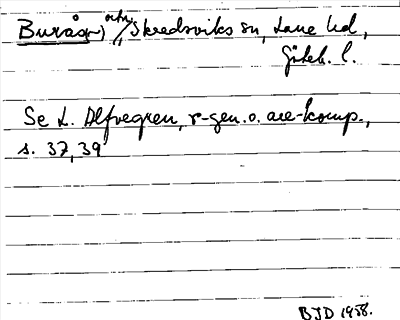 Buråsen, Skredsviks sn, Lane hd,
Göteb. l.
Se L. Alfvegren, r-gen. o. are-komp.,
s. 37, 39
BJD 1958.